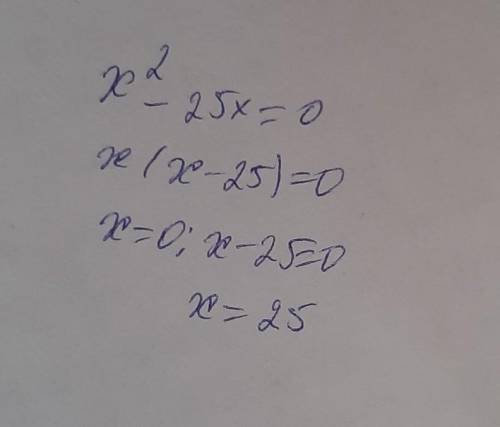 x² - 25x = 0
x(x - 25) = 0
x = 0; x - 25 = 0
x = 25